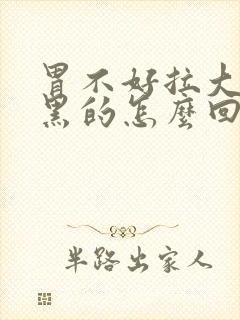 胃不好拉大
黑的怎麼回
半路出家人